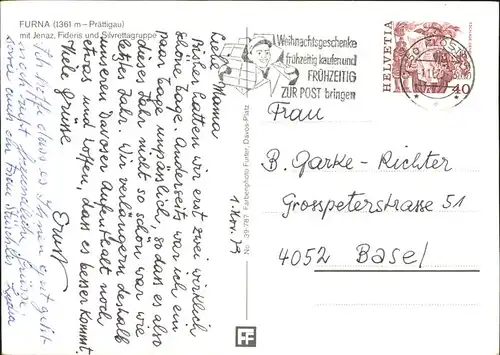 FURNA (1361 m – Prättigau)
mit Jenaz, Fideris und Silvrettagruppe
Liebe Mama
Bisher hatten wir erst zwei wirklich
schöne Tage. Anderseits war ich ein
paar Tage unpässlich, so dass es also
dieses Jahr nicht so schön war wie
letztes Jahr. Wir verlängern deshalb
unseren Davoser Aufenthalt noch
etwas und hoffen, dass es besser kommt.
Viele Grüsse
Ernst
Ich hoffe dass es Ihnen gut geht
und
auch ein Frau
Lydia
1. Nov. 79
No. 39-787 Farbenphoto Furter, Davos-Platz
Weihnachtsgeschenke
frühzeitig kaufen und
FRÜHZEITIG
ZUR POST bringen
HELVETIA
40
Frau
B. Garke-Richter
Grosspeterstrasse 51
4052 Basel